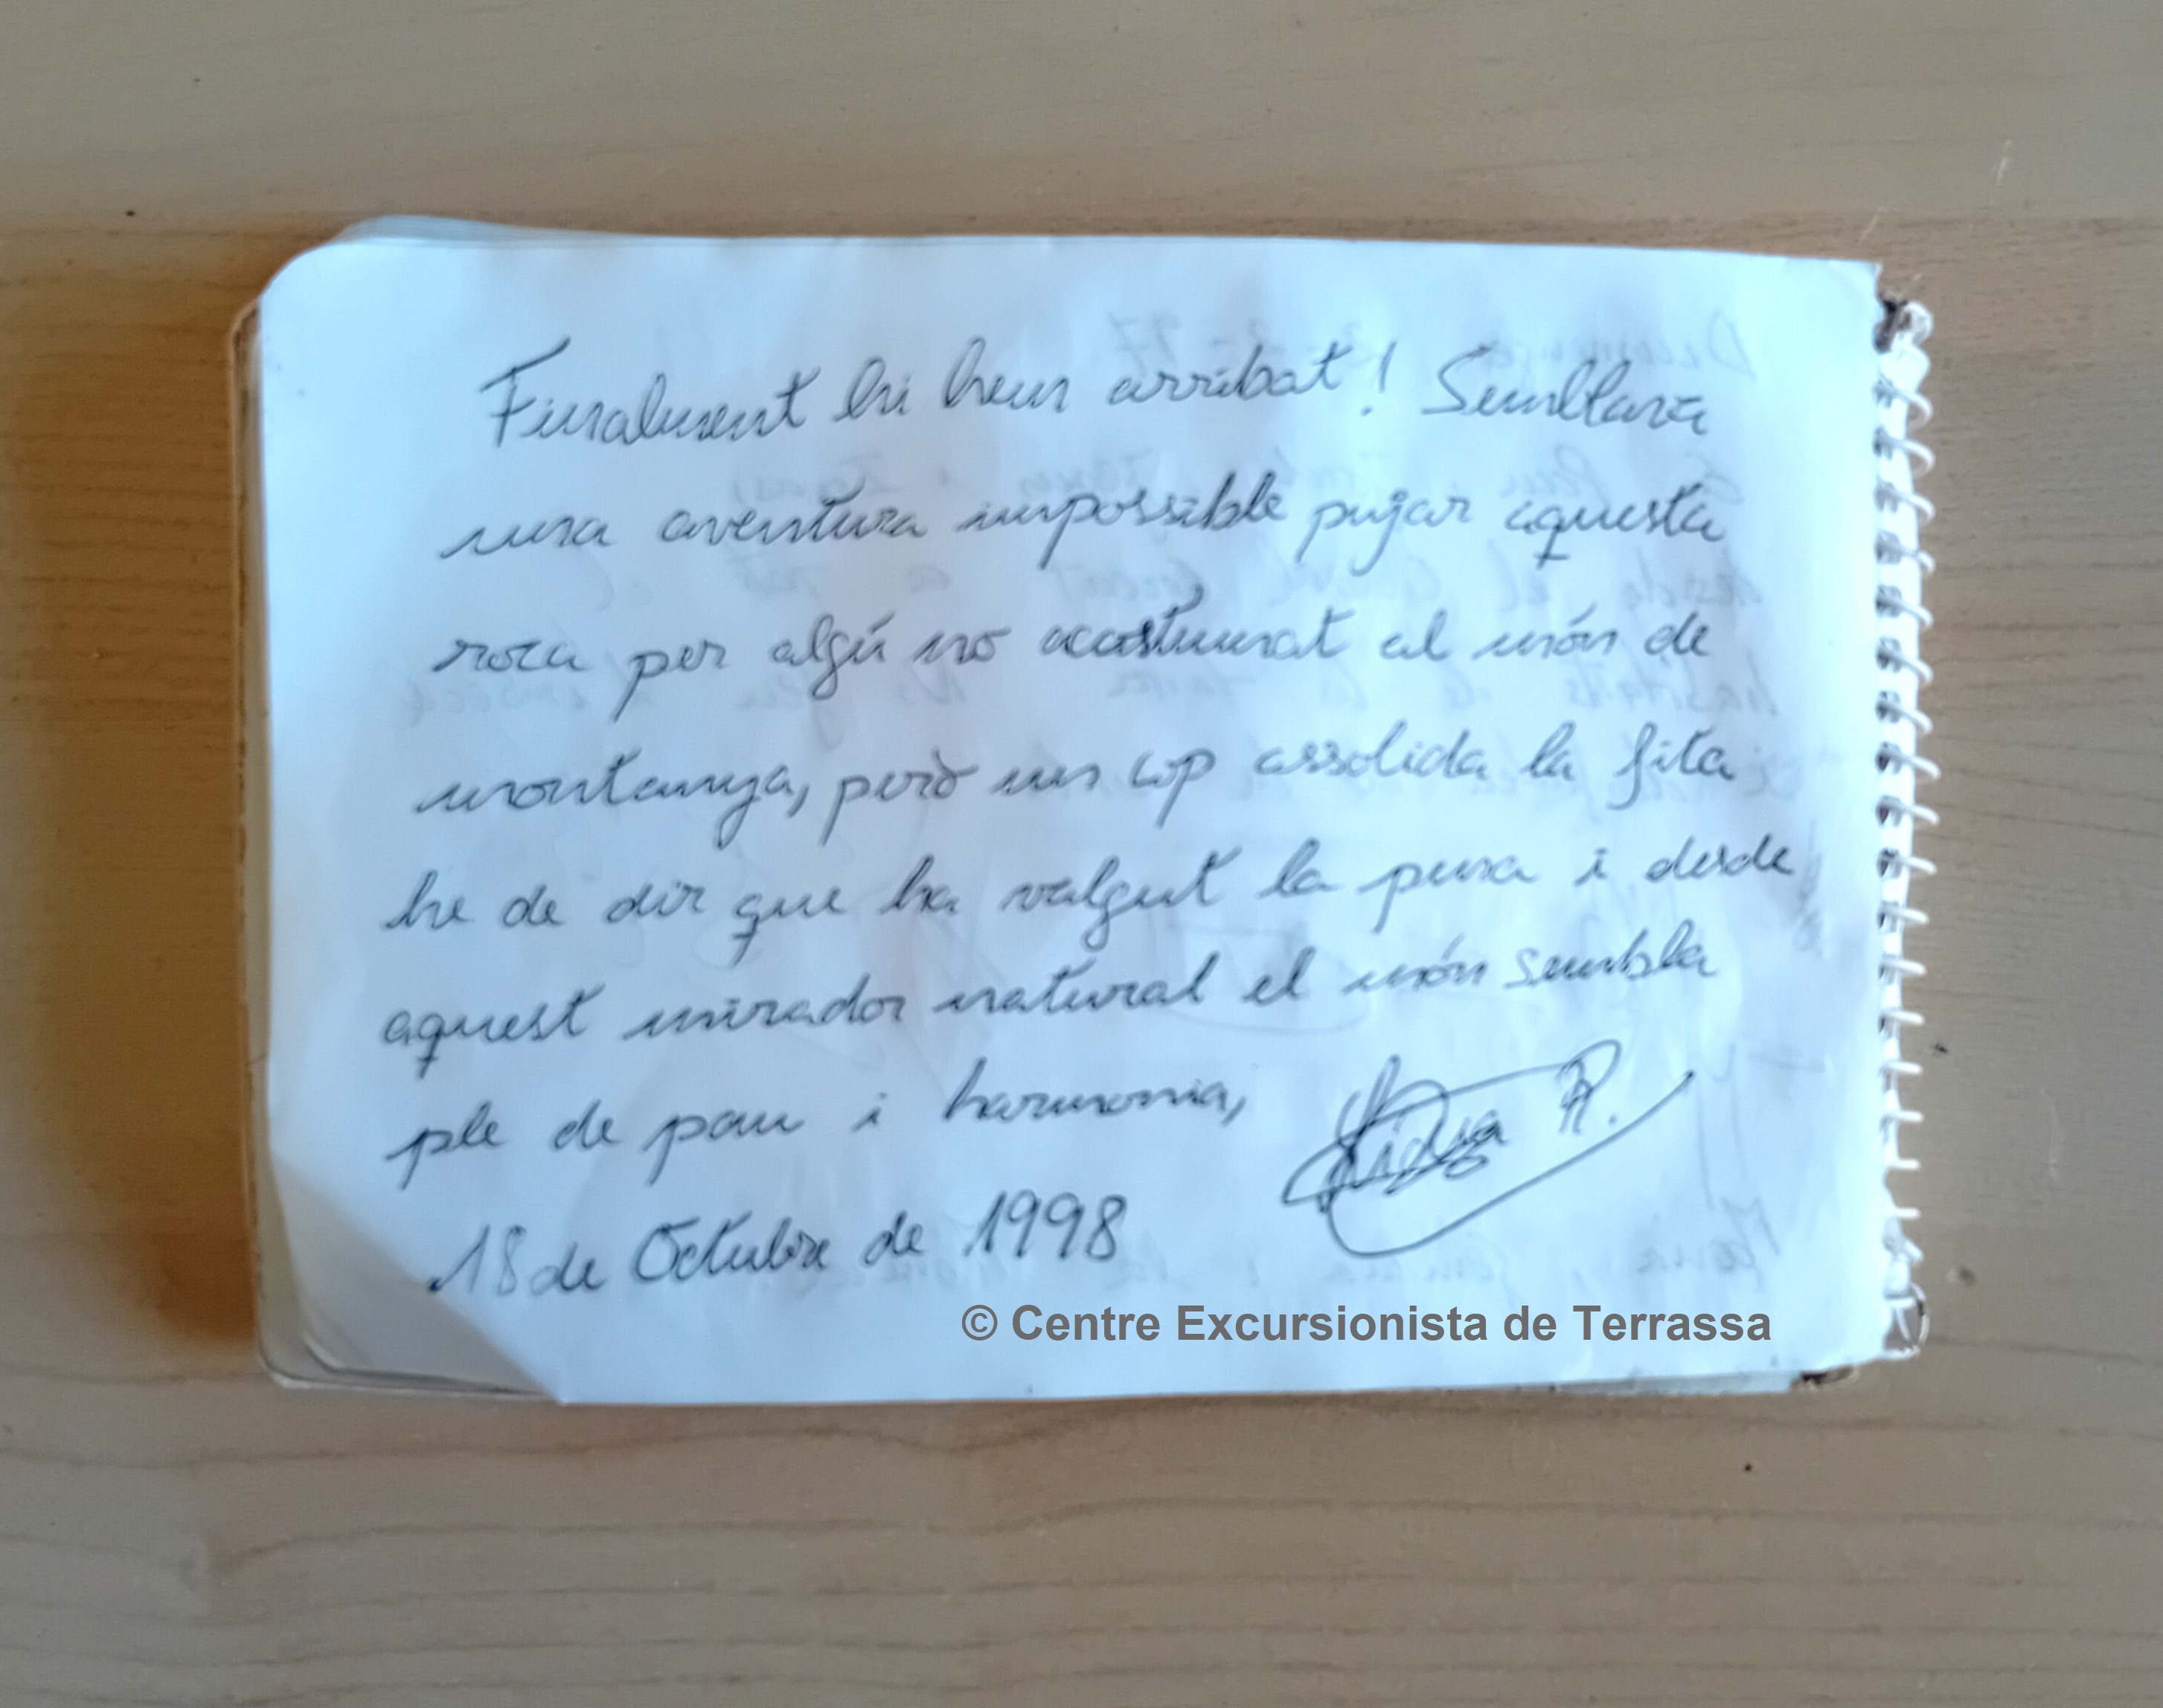 Finalment hi hem arribat! Semblava
una aventura impossible pujar aquesta
roca per algú no acostumat al món de
montanya, però un cop assolida la fita
he de dir que ha valgut la pena i desde
aquest mirador natural el món sembla
ple de pau i harmonia,
Lidya R.
18 de Octubre de 1998
© Centre Excursionista de Terrassa